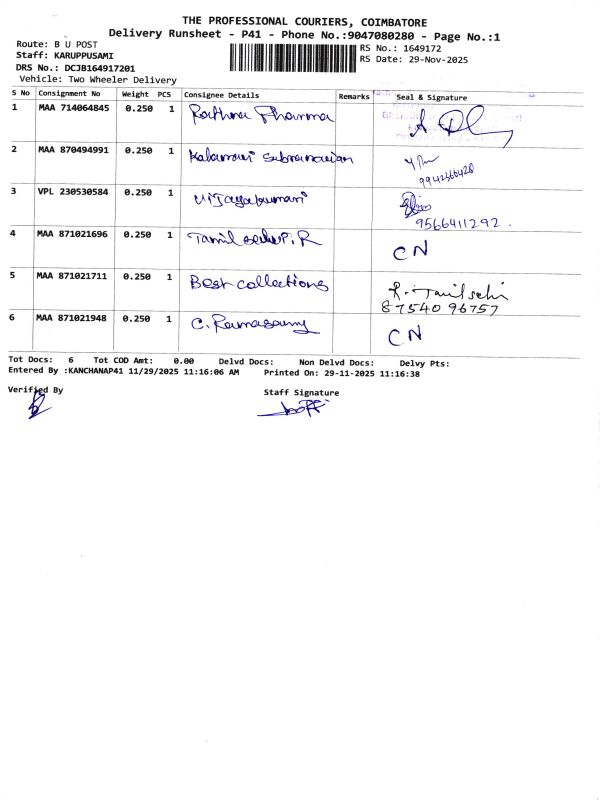 THE PROFESSIONAL COURIERS, COIMBATORE
Delivery Runsheet - P41 - Phone No.:9047080280 - Page No.:1
Route: B U POST
RS No.: 1649172
Staff: KARUPPUSAMI
RS Date: 29-Nov-2025
DRS No.: DCJB164917201
Vehicle: Two Wheeler Delivery
S No Consignment No Weight PCS Consignee Details Remarks Seal & Signature
1 MAA 714064845 0.250 1 Rathna Pharma
2 MAA 870494991 0.250 1 Subramanian
3 VPL 230530584 0.250 1 Vijayakumari
9566411292.
4 MAA 871021696 0.250 1 CN
5 MAA 871021711 0.250 1 Best collections
87540 96757
6 MAA 871021948 0.250 1 C. Ramasamy CN
Tot Docs: 6 Tot COD Amt: 0.00 Delvd Docs: Non Delvd Docs: Delvy Pts:
Entered By :KANCHANAP41 11/29/2025 11:16:06 AM Printed On: 29-11-2025 11:16:38
Verified By Staff Signature